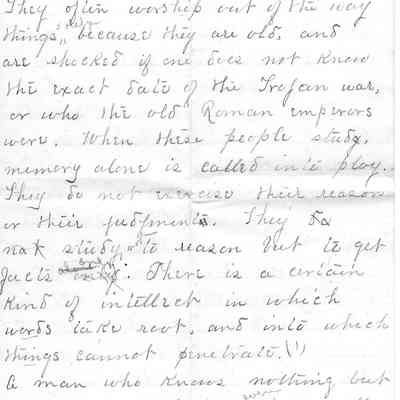 They often worship out of the way
things, because they are old, and
are shocked if one does not know
the exact date of the Trojan war,
or who the old Roman emperors
were. When these people study,
memory alone is called into play.
They do not exercise their reason
or their judgment. They do
not study, to reason but to get
facts. There is a certain
kind of intellect in which
words take root, and into which
things cannot penetrate. (1)
A man who knows nothing but